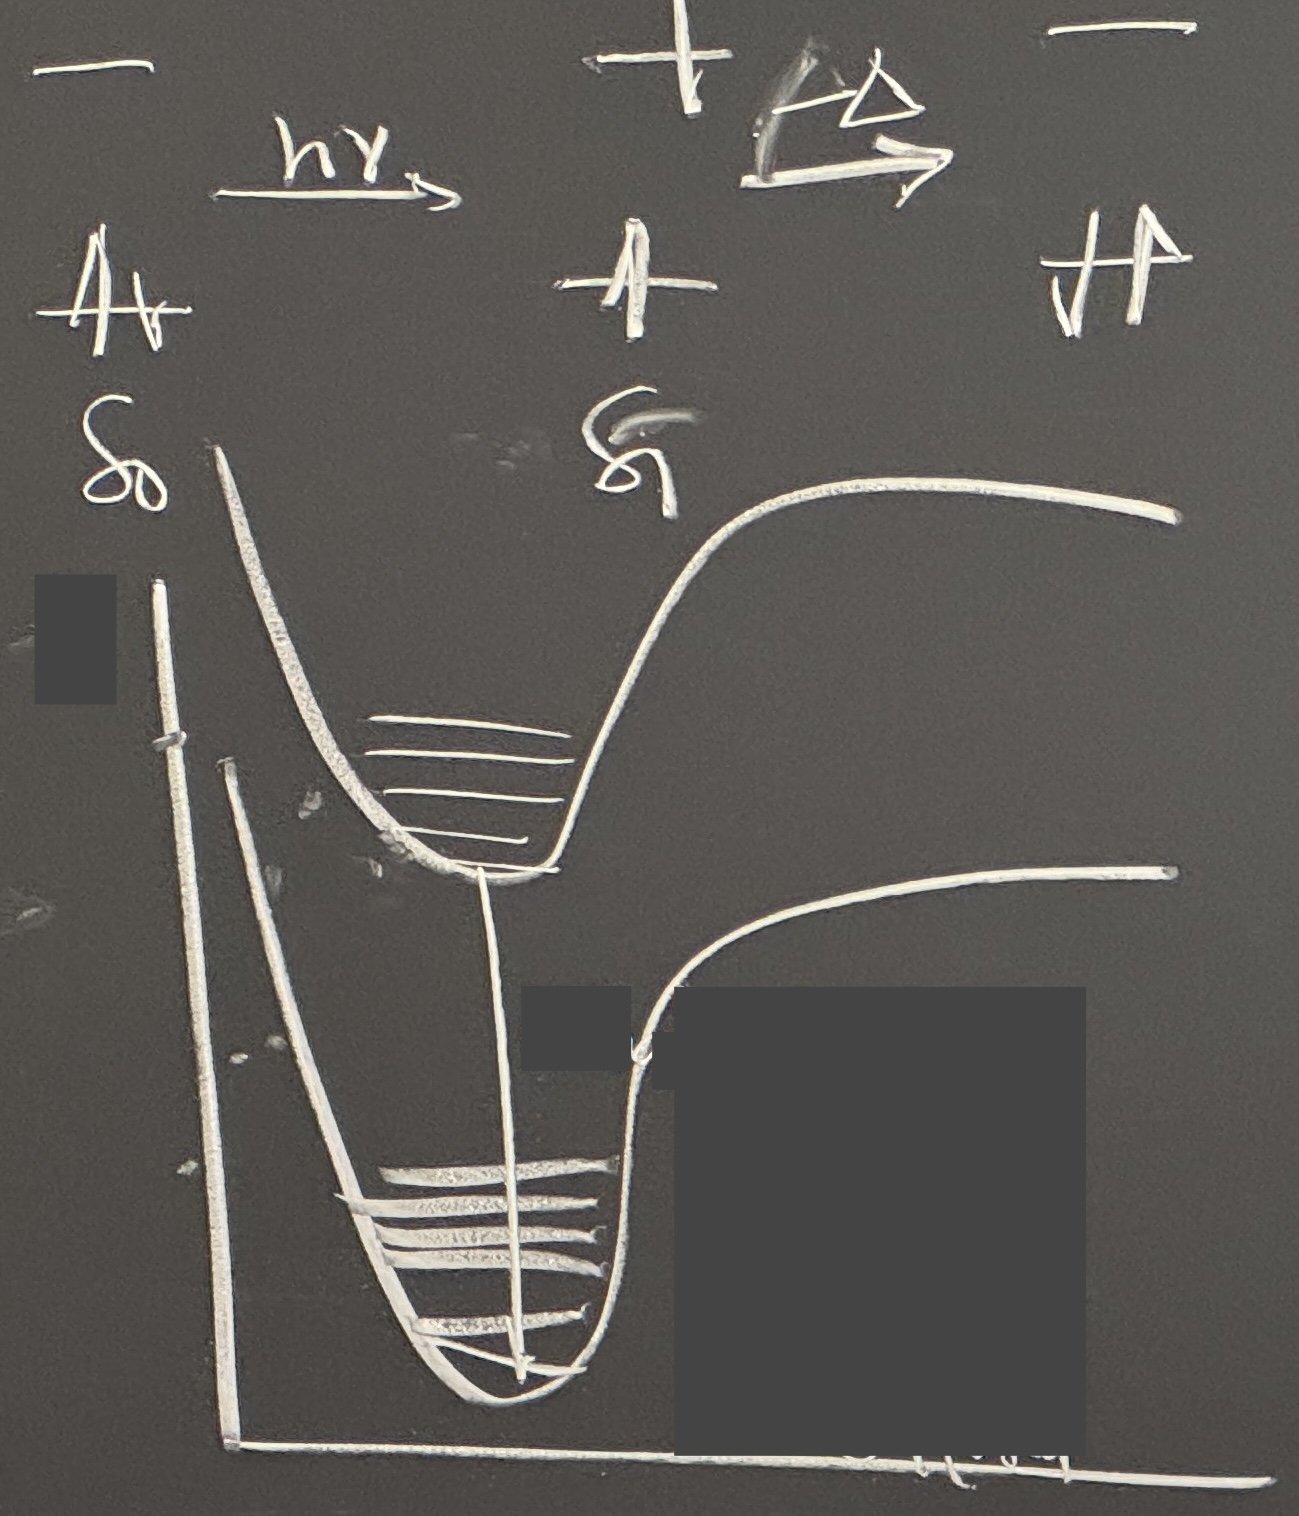 hγ
-Δ
S₀
S₁